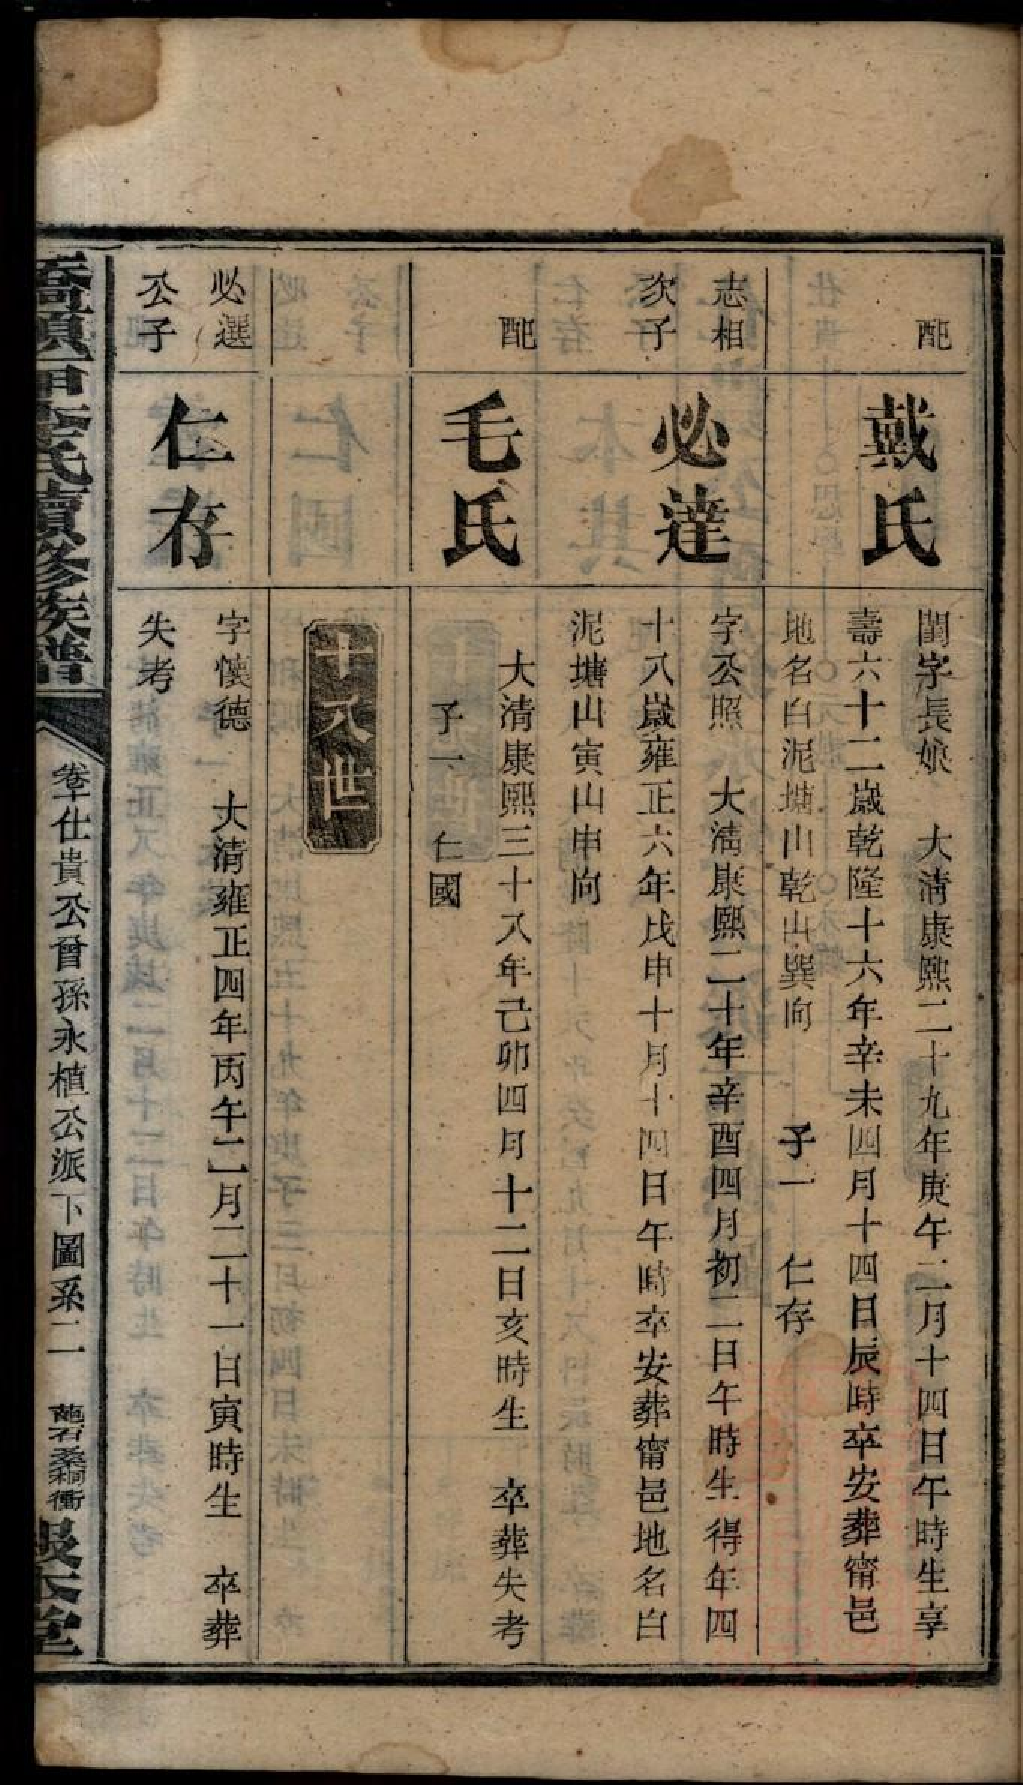 配
戴氏
閨字長娘　大清康熙二十九年庚午二月十四日午時生享
壽六十二歲乾隆十六年辛未四月十四日辰時卒安葬甯邑
地名白泥塘山乾山巽向　子一　仁存
志相
次子
必達
字公照　大清康熙二十年辛酉四月初二日午時生得年四
十八歲雍正六年戊申十月十四日午時卒安葬甯邑地名白
泥塘山寅山申向
配
毛氏
大清康熙三十八年己卯四月十二日亥時生　卒葬失考
子一　仁國
十八世
必選
公子
仁存
字懷德　大清雍正四年丙午二月二十一日寅時生　卒葬
失考
氏續修族譜
卷十仕貴公曾孫永植公派下圖系二
堂